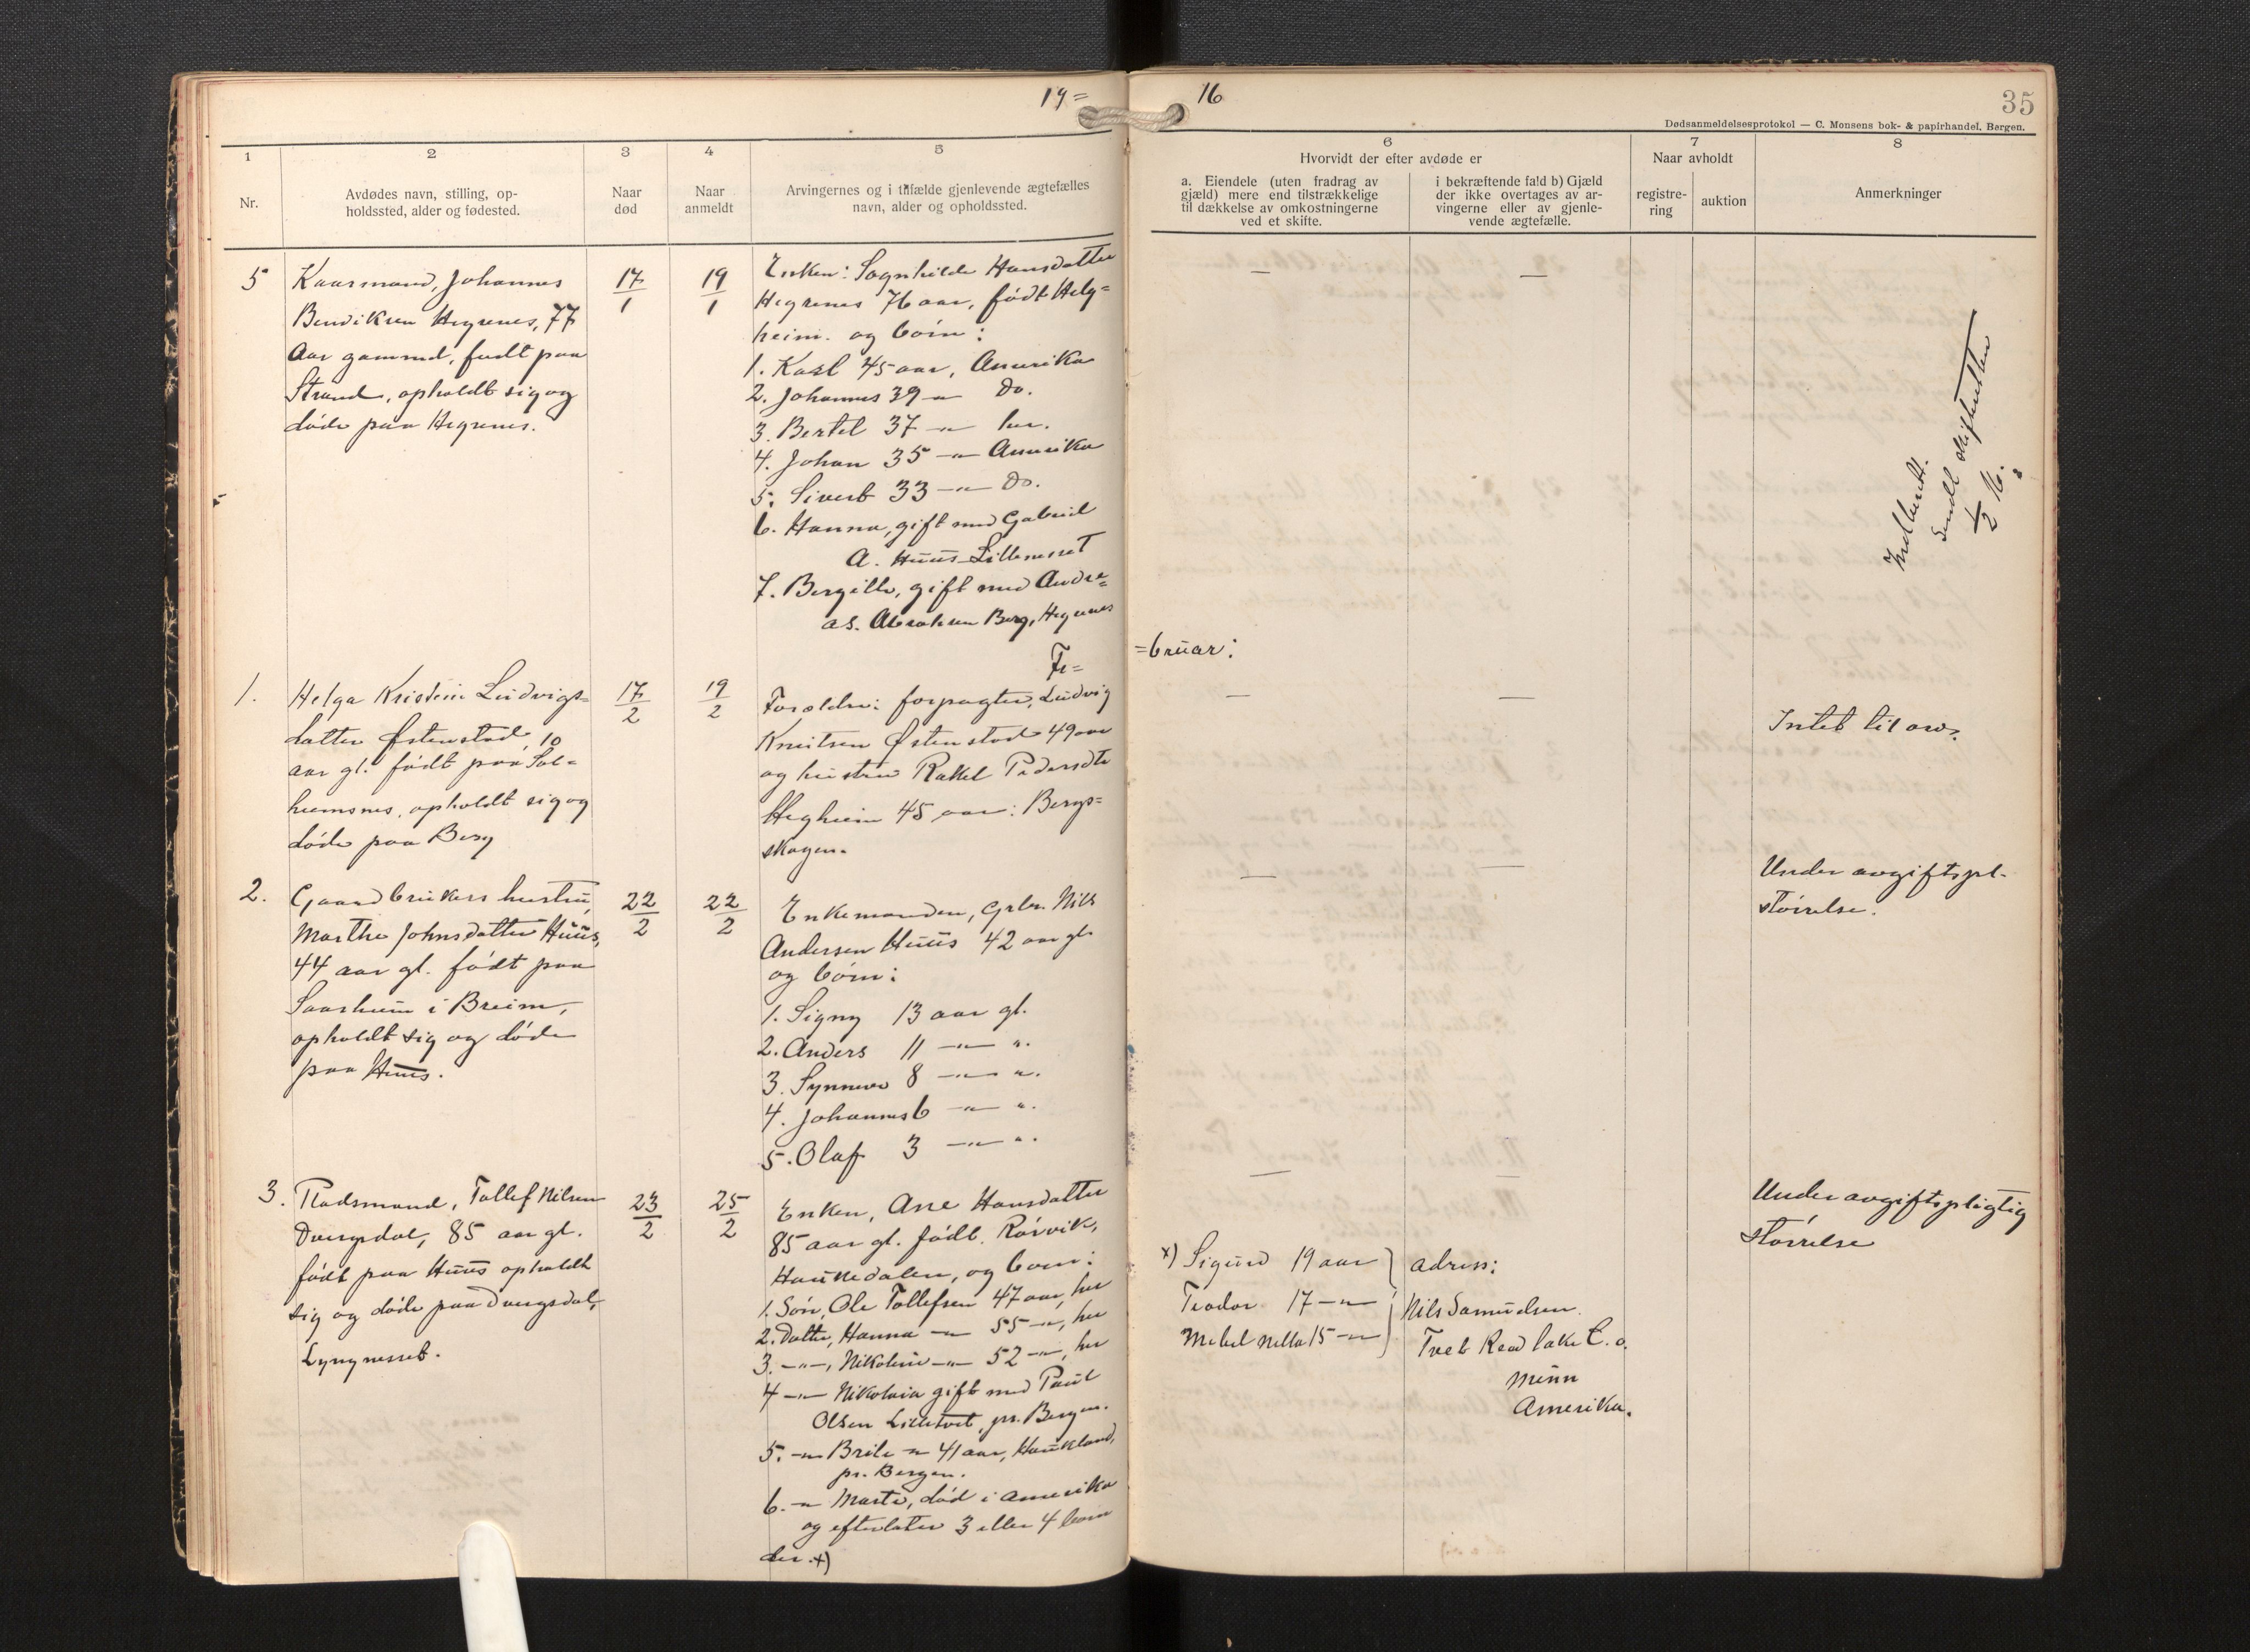 19=
16
35
Dødsanmeldelsesprotokol — C. Monsens bok- & papirhandel, Bergen.
1
2
3
4
5
6
7
8
Nr.
Avdødes navn, stilling, op-
holdssted, alder og fødested.
Naar
død
Naar
anmeldt
Arvingernes og i tilfælde gjenlevende ægtefælles
navn, alder og opholdssted.
Hvorvidt der efter avdøde er
a. Eiendele (uten fradrag av
gjæld) mere end tilstrækkelige
til dækkelse av omkostningerne
ved et skifte.
i bekræftende fald b) Gjæld
der ikke overtages av ar-
vingerne eller av gjenle-
vende ægtefælle.
Naar avholdt
registre-
ring
auktion
Anmerkninger
5
Kaarmand, Johannes
Bendiksen Hegrenes, 77
Aar gammel, født paa
Strand, opholdt sig og
døde paa Hegrenes.
17/1
19/1
Enken: Sognhilde Hansdatter
Hegrenes 76 aar, født Helg=
heim. og børn:
1. Karl 45 aar, Amerika
2. Johannes 39 –"– Do.
3. Bertel 37 –"– her.
4. Johan 35 –"– Amerika
5. Sivert 33 –"– Do.
6. Hanna, gift med Gabriel
A. Huus Lillenesset
7. Bergitte, gift med Andre=
as. Abrahsen Berg, Hegrenes
—
—
Indberett.
Sendt skifteretten
1/2 16.
Fe=
=bruar:
1.
Helga Kristine Ludvigs=
datter Østenstad, 10
aar gl. født paa Sol=
heimsnes, opholdt sig og
døde paa Berg
17/2
19/2
Forældre: forpagter, Ludvig
Knutsen Østenstad 49 aar
og hustru Rakel Pedersdtr
Hegheim 45 aar: Bergs=
skogen.
—
—
Intet til arv.
2.
Gaardbrukers hustru,
Marthe Johnsdatter Huus,
44 aar gl. født paa
Saarheim i Breim,
opholdt sig og døde
paa Huus.
22/2
22/2
Enkemanden, Grbr. Nils
Andersen Huus 42 aar gl.
og børn:
1. Signy 13 aar gl.
2. Anders 11 –"– ".
3. Synneve 8 –"– ".
4. Johannes 6 –"– ".
5. Olaf 3 –"– ".
—
—
Under avgiftspl.
størrelse.
3.
Pladsmand, Tollef Nilsen
Dvergsdal, 85 aar gl.
født paa Huus opholdt
sig og døde paa Dvergsdal,
Lyngnesset.
23/2
25/2
Enken, Ane Hansdatter
85 aar gl. født. Rørvik,
Haukedalen, og børn:
1. Søn, Ole Tollefsen 47 aar, her
2. Datter, Hanna –"– 55 –"–, her
3. –"–, Nikoline –"– 52 –"–, her
4 –"– Nikolaia gift med Paul
Olsen Lilletvet, pr. Bergen.
5. –"– Brite –"– 41 aar, Haukland,
pr. Bergen.
6. –"– Marte, død i Amerika
og efterlater 3 eller 4 børn
der. x)
—
x) Sigurd 19 aar
Teodor 17 –"–
Mebel Nella 15 –"–
adress:
Nils Samuelsen
Tvet Read lake C. o.
Minn
Amerika.
Under avgiftspligtig
størrelse